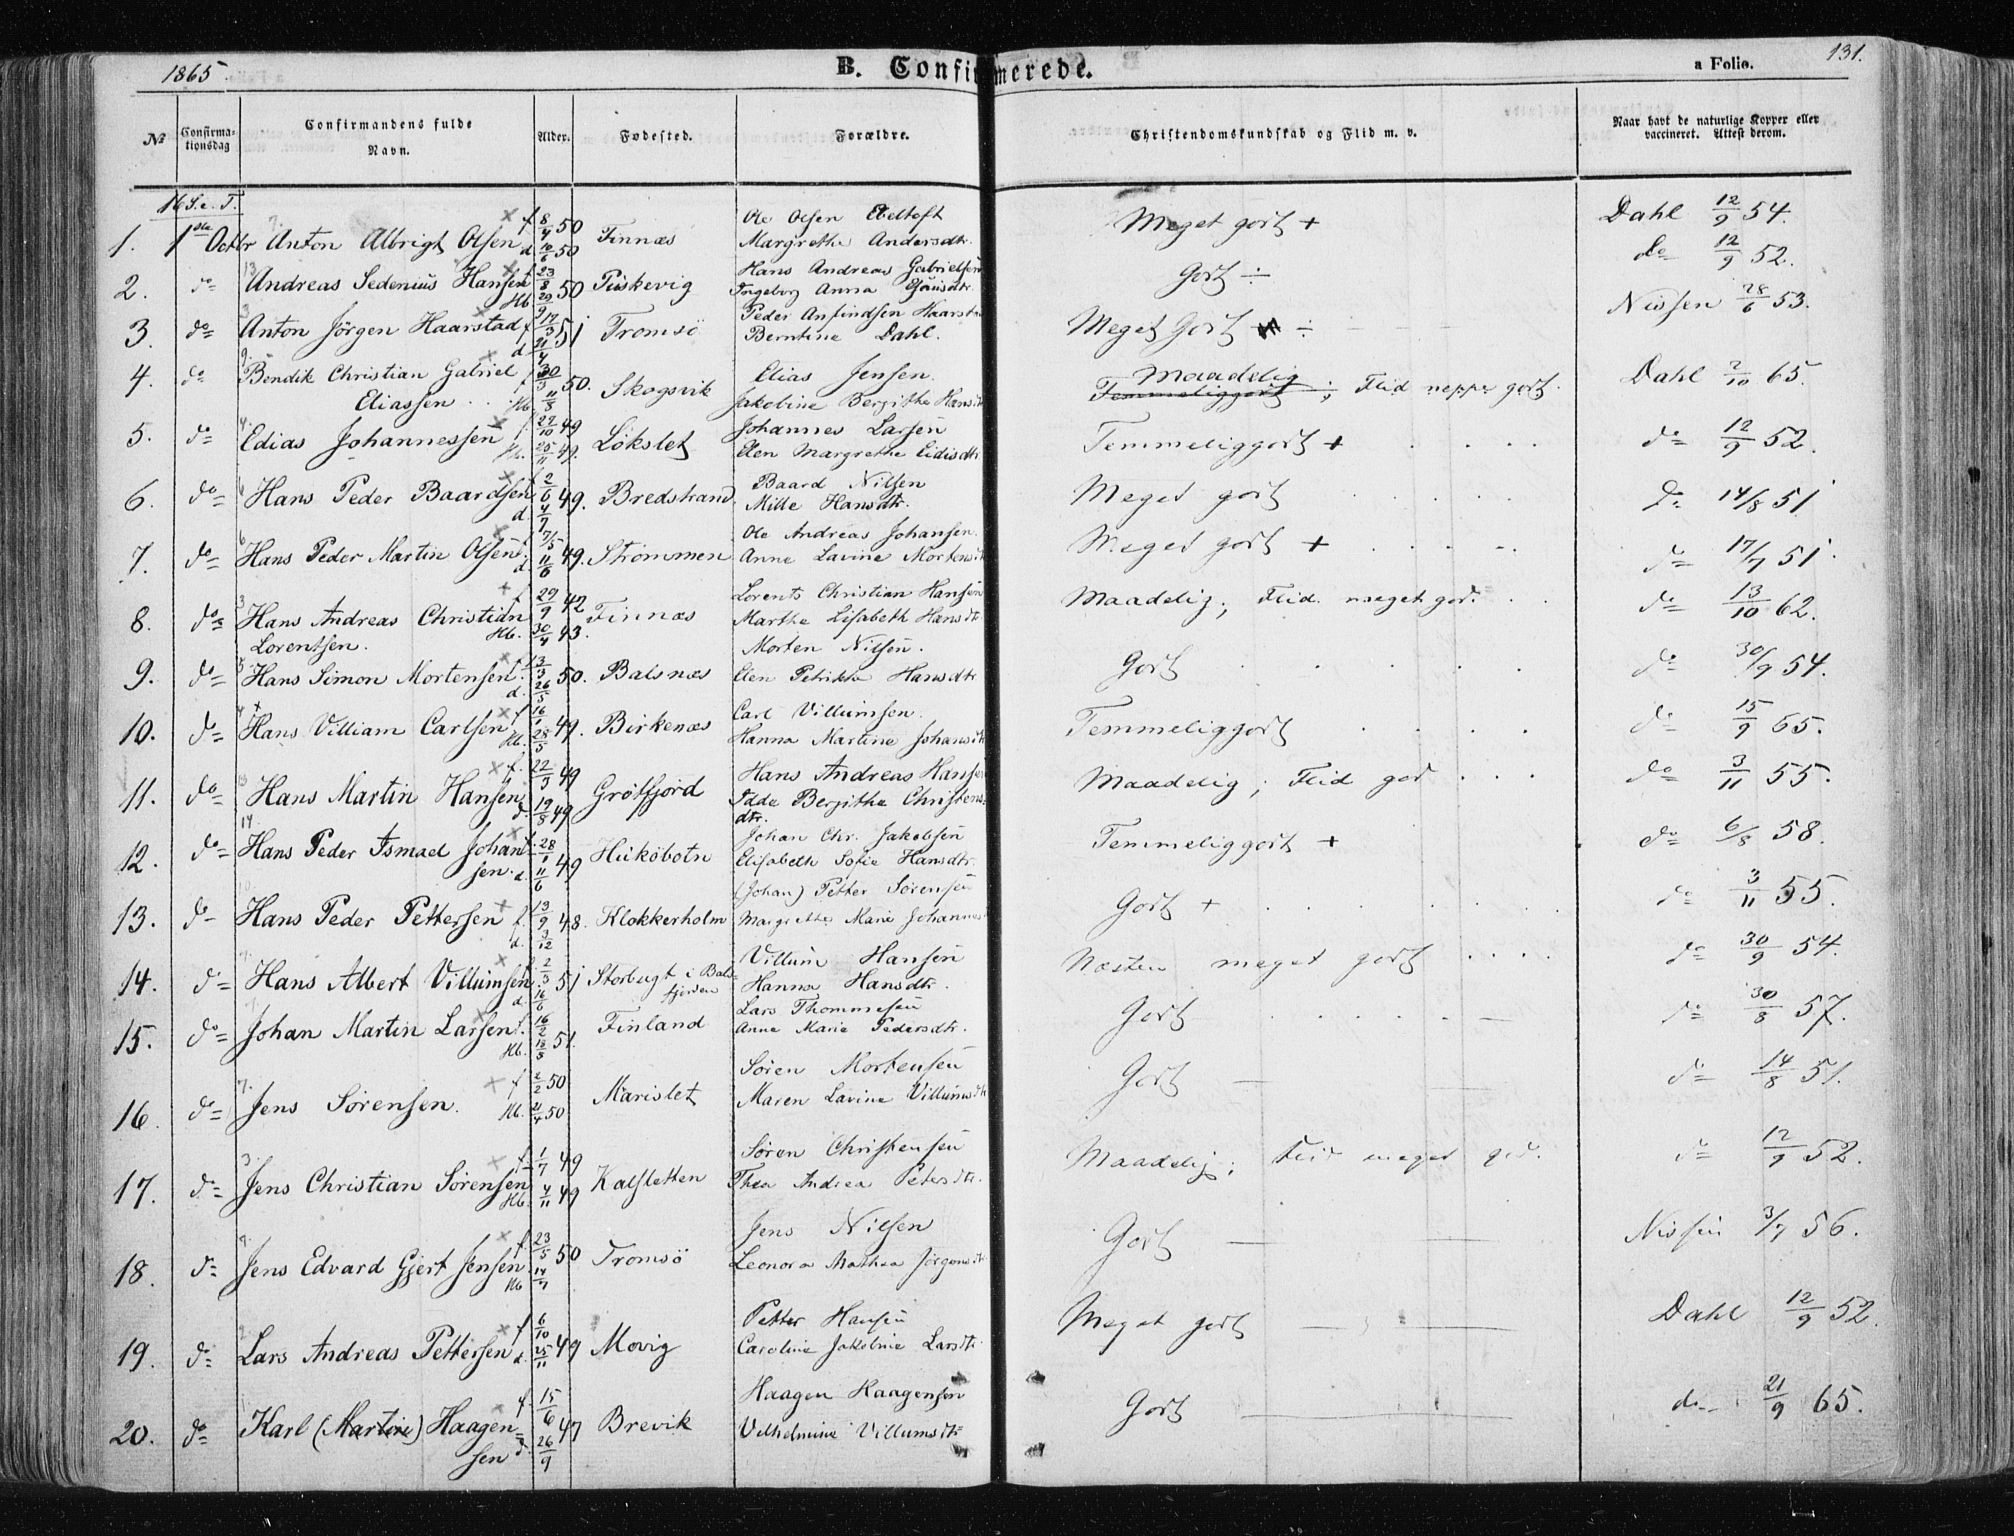 1865.
B. Confirmerede.
a Folio.
131.
No
Confirma-
tionsdag
Confirmandens fulde
Navn.
Alder.
Fødested.
Forældre.
Christendomskundskab og Flid m. v.
Naar havt de naturlige Kopper eller
vaccineret. Attest derom.
16 S. e. T.
1. 1ste Octbr Anton Albrigt Olsen f 8/4 50 d 16/6 50 Finnæs Ole Olsen Ebeltoft Margrethe Andersdtr. Meget godt + Dahl 12/9 54.
2. do Andreas Sedenius Hansen f 23/8 Hb. 29/9 50 Hans Andreas Gabrielsen Ingeborg Anna Godt ÷ do 12/9 52.
3. do Anton Jörgen Haarstad f 17/3 d 21/4 51 Tromsö Peder Anfindsen Haarstad Berntine Dahl. Meget Godt ÷ Nissen 28/6 53.
4. do Bendik Christian Gabriel Eliassen f 30/3 Hb. 11/5 50. Skogsvik Elias Jensen. Jakobine Bergithe Hansdtr Maadelig Temmeliggodt; Flid neppe godt. Dahl 2/10 65.
5. do Edias Johannessen f 22/10 49 Hb. 25/11 49. Lökslet Johannes Larsen Elen Margrethe Eidisdtr Temmeliggodt + do 12/9 52.
6. do Hans Peder Baardsen f 2/6 d. 4/7 49. Bredstrand. Baard Nilsen Mille Hansdtr. Meget godt do 14/8 51
7. do Hans Peder Martin Olsen f 7/5 d. 11/6 49. Strömmen Ole Andreas Johansen Anne Lavine Mortensdtr Meget godt + do 17/7 51.
8. do Hans Andreas Christian Lorentsen. f 29/9 42 Hb. 30/4 43. Finnæs Lorents Christian Hansen Marthe Lisabeth Hansdtr. Maadelig; Flid meget god. do 13/10 62.
9. do Hans Simon Mortensen f 13/3 d. 26/5 50. Balsnæs Morten Nilsen. Elen Petrikke Hansdtr Godt do 30/9 54.
10. do Hans Villiam Carlsen f 16/1 Hb. 28/5 49. Birkenæs Carl Villumsen. Hanna Martine Johansdtr Temmeliggodt do 15/9 65.
11. do Hans Martin Hansen f. 22/3 49 d. 19/8 49 Grötfjord Hans Andreas Hansen Idde Bergithe Christens- dtr. Maadelig; Flid god do 3/11 55.
12. do Hans Peder Ismael Johansen. f 28/1 d 11/6 49 Johan Chr. Jakobsen Elisabeth Sofie Hansdtr. Temmeliggodt + do 6/8 58.
13. do Hans Peder Pettersen f. 13/9 d. 3/12 48. Klokkerholm (Johan) Petter Sörensen Margrethe Marie Johannesdtr Godt + do 3/11 55.
14. do Hans Albert Villumsen f 2/3 d. 16/6 51 Storbugt i Bals- fjorden Villum Hansen Hanna Hansdtr. Næsten meget godt do 30/9 54.
15. do Johan Martin Larsen f. 16/2 Hb. 18/5 51. Finland Lars Thommesen Anne Marie Pedersdtr. Godt do 30/8 57.
16. do Jens Sörensen. f 2/2 50 Hb. 21/4 50 Marislet Sören Mortensen Maren Lavine Villumsdtr Godt do 14/8 51.
17. do Jens Christian Sörensen f 1/7 49 Hb. 4/11 49 Kalsletten Sören Christensen Thea Andrea Petersdtr. Maadelig; Flid meget god. do 12/9 52.
18. do Jens Edvard Gjert Jensen f 23/5 Hb 14/7 50 Tromsö Jens Nilsen Leonora Mathea Jörgensdtr Godt Nissen 3/7 56.
19. do Lars Andreas Pettersen f 6/10 d. 25/11 49 Movig Petter Hansen Caroline Jakobine Larsdtr Meget godt Dahl 12/9 52.
20. do Karl (Martin) Haagensen f. 15/6 d. 26/9 47 Brevik Haagen Haagensen Vilhelmine Villumsdtr Godt do 21/9 65.